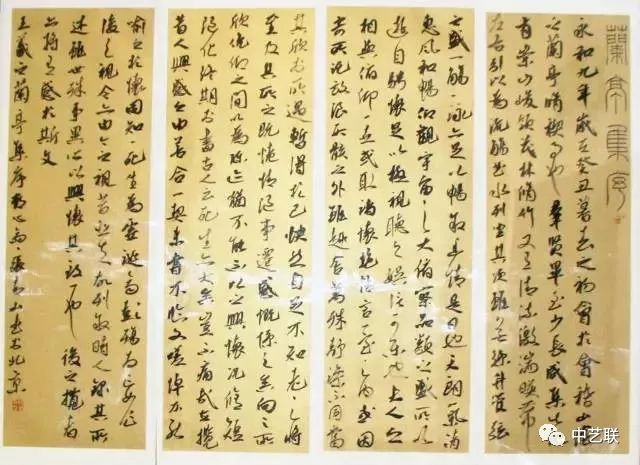 蘭亭集序
永和九年歲在癸丑暮春之初會於會稽山陰
之蘭亭脩禊事也群賢畢至少長咸集此地
有崇山峻領茂林脩竹又有清流激湍暎帶
左右引以為流觴曲水列坐其次雖無絲竹管弦
之盛一觴一詠亦足以暢敘幽情是日也天朗氣清
惠風和暢仰觀宇宙之大俯察品類之盛所以
遊目騁懷足以極視聽之娛信可樂也夫人之
相與俯仰一世或取諸懷抱悟言一室之內或因
寄所託放浪形骸之外雖趣舍萬殊靜躁不同當
其欣於所遇暫得於己快然自足不知老之將
至及其所之既惓情隨事遷感慨係之矣向之所
欣俛仰之間以為陳迹猶不能不以之興懷況脩短
隨化終期於盡古人云死生亦大矣豈不痛哉每攬
昔人興感之由若合一契未嘗不臨文嗟悼不能
喻之於懷固知一死生為虛誕齊彭殤為妄作
後之視今亦由今之視昔悲夫故列敘時人錄其所
述雖世殊事異所以興懷其致一也後之攬者
亦將有感於斯文
王羲之蘭亭集序 書於北京
中艺联